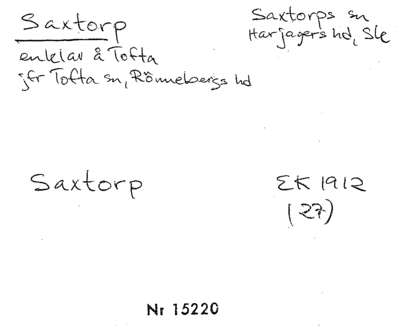 Saxtorp
Saxtorps sn
Harjagers hd, Ske
enklav å Tofta
jfr Tofta sn, Rönnebergs hd
Saxtorp
EK 1912
(27)
Nr 15220